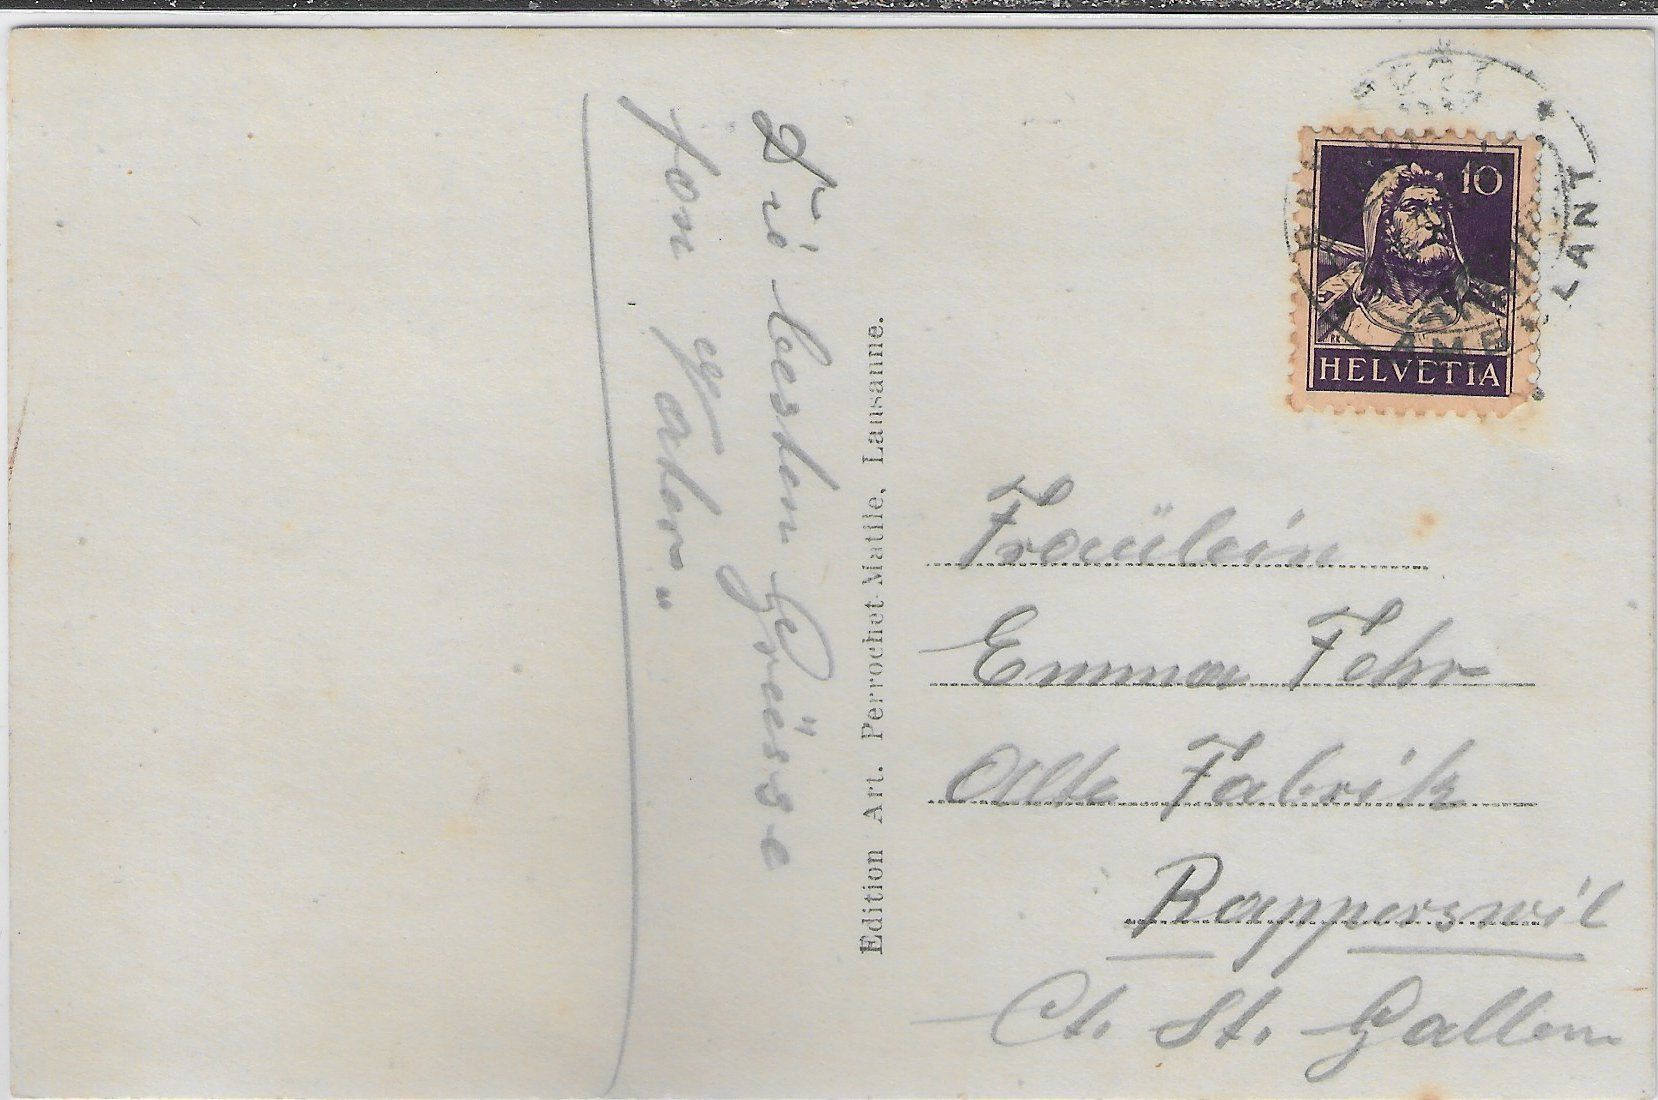 Die besten Grüsse
fon Vater"
Edition Art. Perrochet-Matile, Lausanne.
10
HELVETIA
LANT
Fraülein
Emma Fehr
Alte Fabrik
Rapperswil
Ct. St. Gallen